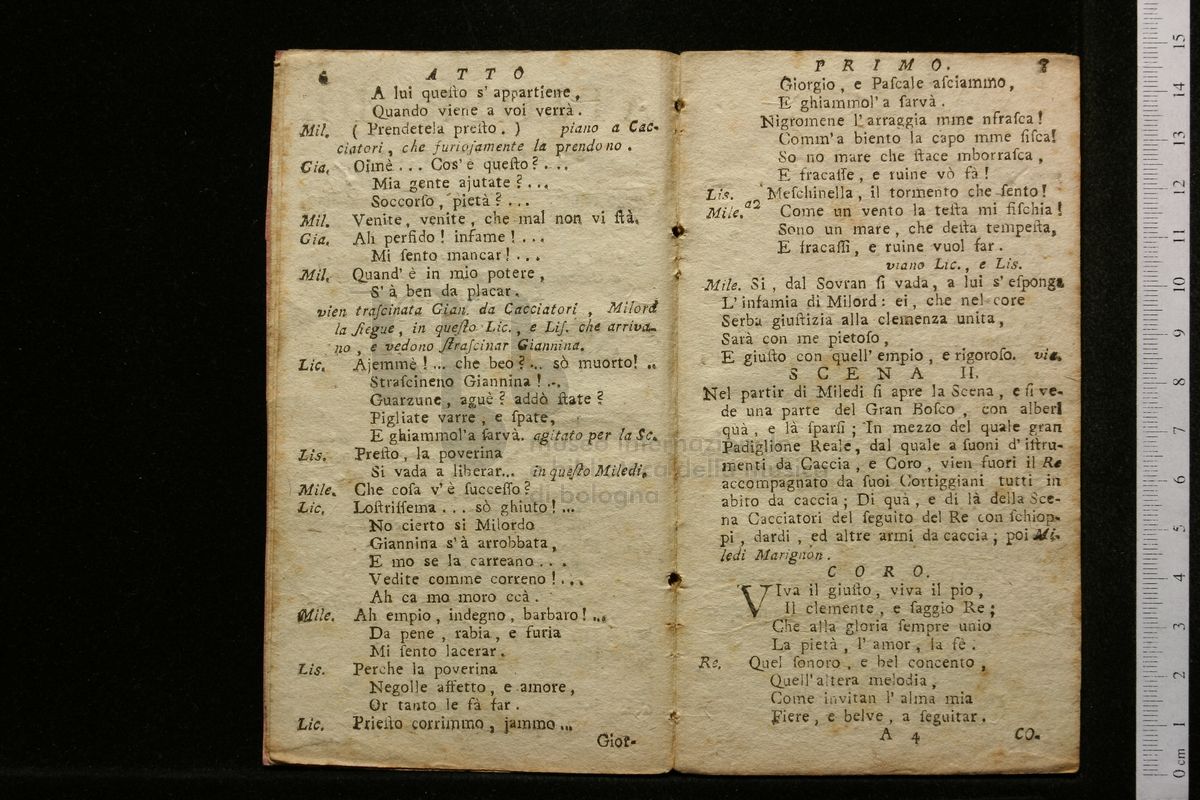 6 ATTO
A lui queſto s' appartiene,
Quando viene a voi verrà.
Mil. ( Prendetela preſto. ) piano a Cac-
ciatori, che furioſamente la prendono.
Gia. Oimè... Cos' è queſto?....
Mia gente ajutate?...
Soccorſo, pietà?...
Mil. Venite, venite, che mal non vi ſtà.
Gia. Ah perfido! infame!...
Mi ſento mancar!...
Mil. Quand' è in mio potere,
S' à ben da placar.
vien traſcinata Gian. da Cacciatori, Milord
la ſiegue, in queſto Lic., e Liſ. che arriva-
no, e vedono ſtraſcinar Giannina.
Lic. Ajemmè!... che beo?... sò muorto!..
Straſcineno Giannina!...
Guarzune, aguè? addò ſtate?
Pigliate varre, e ſpate,
E ghiammol'a ſarvà. agitato per la Sc.
Lis. Preſto, la poverina
Si vada a liberar... in queſto Miledi.
Mile. Che coſa v' è ſucceſſo?
Lic. Loſtriſſema... sò ghiuto!...
No cierto si Milordo
Giannina s'à arrobbata,
E mo se la carreano...
Vedite comme correno!...
Ah ca mo moro ccà.
Mile. Ah empio, indegno, barbaro!...
Da pene, rabia, e furia
Mi ſento lacerar.
Lis. Perche la poverina
Negolle affetto, e amore,
Or tanto le fà far.
Lic. Prieſto corrimmo, jammo...
Gior-
PRIMO. 7
Giorgio, e Paſcale aſciammo,
E ghiammol'a ſarvà.
Nigromene l'arraggia mme nfraſca!
Comm'a biento la capo mme ſiſca!
So no mare che ſtace mborraſca,
E fracaſſe, e ruine vò fà!
Lis. Meſchinella, il tormento che ſento!
Mile. a2 Come un vento la teſta mi fiſchia!
Sono un mare, che deſta tempeſta,
E fracaſſi, e ruine vuol far.
viano Lic., e Lis.
Mile. Si, dal Sovran ſi vada, a lui s' eſponga
L' infamia di Milord: ei, che nel core
Serba giuſtizia alla clemenza unita,
Sarà con me pietoſo,
E giuſto con quell' empio, e rigoroſo. via.
SCENA II.
Nel partir di Miledi ſi apre la Scena, e ſi ve-
de una parte del Gran Boſco, con alberi
quà, e là ſparſi; In mezzo del quale gran
Padiglione Reale, dal quale a ſuoni d' iſtru-
menti da Caccia, e Coro, vien fuori il Re
accompagnato da ſuoi Cortiggiani tutti in
abito da caccia; Di quà, e di là della Sce-
na Cacciatori del ſeguito del Re con ſchiop-
pi, dardi, ed altre armi da caccia; poi Mi-
ledi Marignon.
CORO.
VIva il giuſto, viva il pio,
Il clemente, e ſaggio Re;
Che alla gloria ſempre unio
La pietà, l' amor, la fè.
Re. Quel ſonoro, e bel concento,
Quell' altera melodia,
Come invitan l' alma mia
Fiere, e belve, a ſeguitar.
A 4 CO-
museo internazionale
della musica
di bologna
0 cm 1 2 3 4 5 6 7 8 9 10 11 12 13 14 15